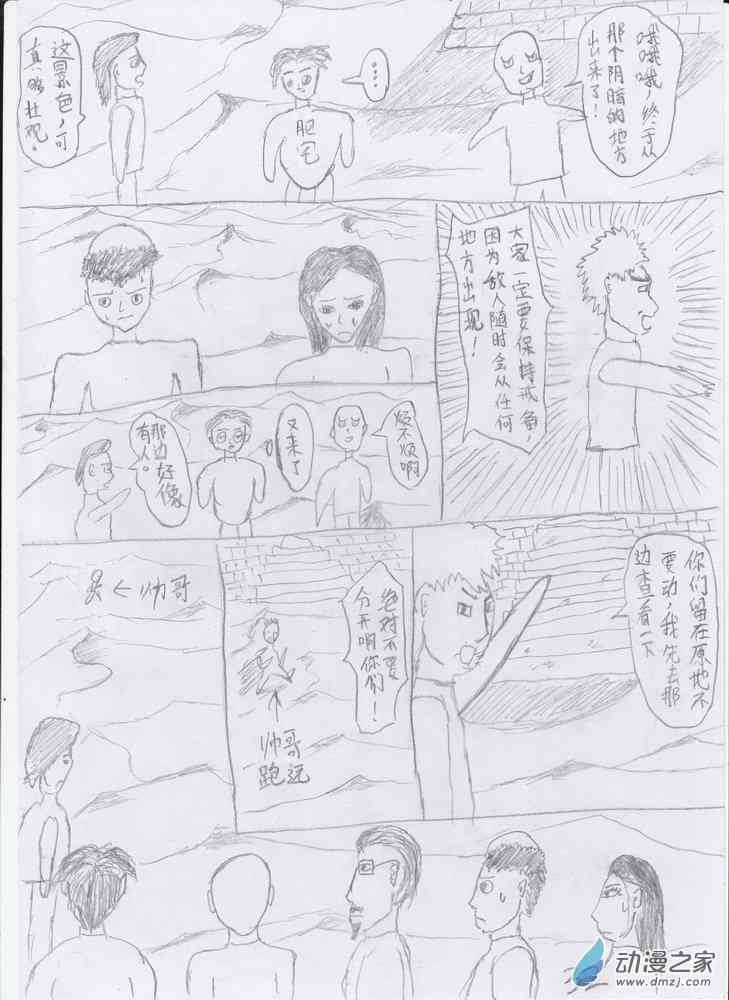 哦哦哦，终于从
那个阴暗的地方
出来了！
....
肥宅
这景色，可
真够壮观。
大家一定要保持戒备，
因为敌人随时会从任何
地方出现！
烦不烦啊
又来了
那边好像
有人。
你们留在原地不
要动，我先去那
边查看一下
绝对不要
分开啊你们！
↑
帅哥
跑远
←帅哥
动漫之家
www.dmzj.com